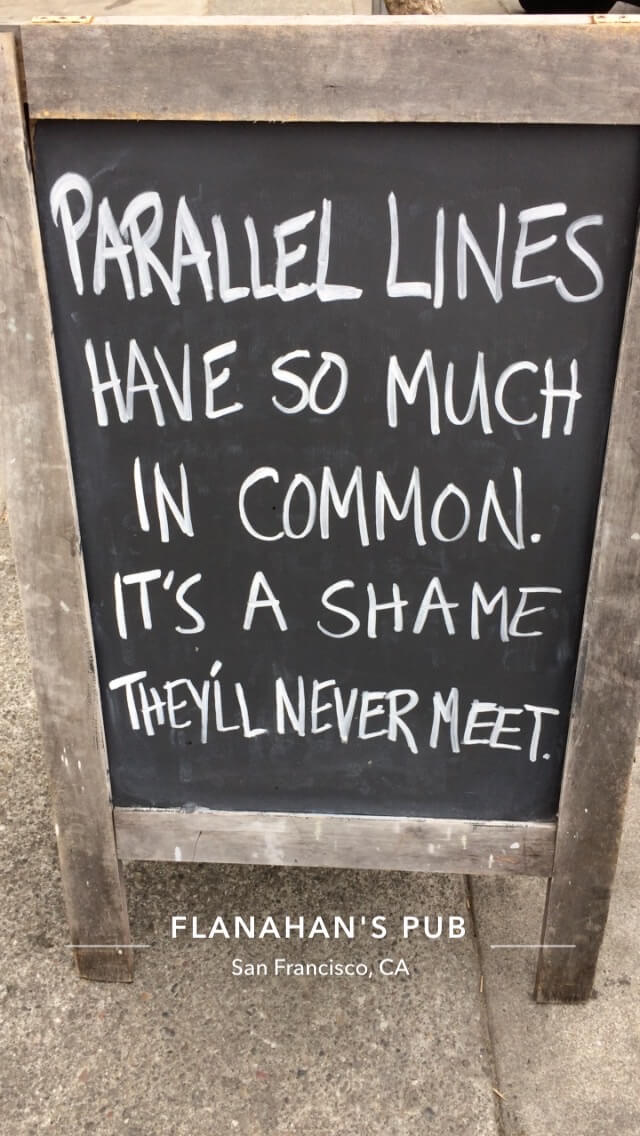 PARALLEL LINES
HAVE SO MUCH
IN COMMON.
IT'S A SHAME
THEY'LL NEVER MEET.
FLANAHAN'S PUB
San Francisco, CA